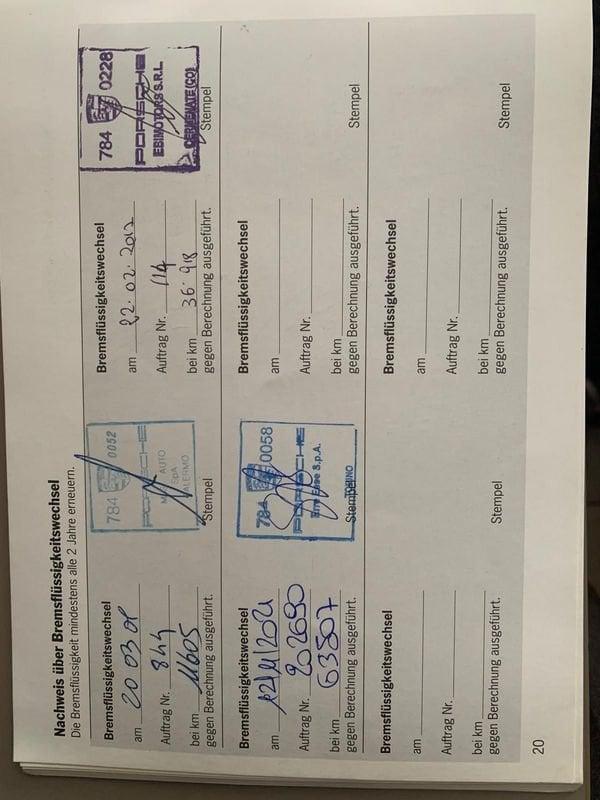 Nachweis über Bremsflüssigkeitswechsel
Die Bremsflüssigkeit mindestens alle 2 Jahre erneuern.
Bremsflüssigkeitswechsel
am 20 03 08
Auftrag Nr. 844
bei km 11605
gegen Berechnung ausgeführt.
784 0052
PORSCHE
AUTO
SpA
PALERMO
Stempel
Bremsflüssigkeitswechsel
am 22.02.2012
Auftrag Nr. 114
bei km 36.918
gegen Berechnung ausgeführt.
784 0228
PORSCHE
EBIMOTORS S.R.L.
CERMENATE (CO)
Stempel
Bremsflüssigkeitswechsel
am 12/11/2021
Auftrag Nr. 202690
bei km 63507
gegen Berechnung ausgeführt.
784 0058
PORSCHE
S.p.A.
TORINO
Stempel
Bremsflüssigkeitswechsel
am
Auftrag Nr.
bei km
gegen Berechnung ausgeführt.
Stempel
Bremsflüssigkeitswechsel
am
Auftrag Nr.
bei km
gegen Berechnung ausgeführt.
Stempel
Bremsflüssigkeitswechsel
am
Auftrag Nr.
bei km
gegen Berechnung ausgeführt.
Stempel
20